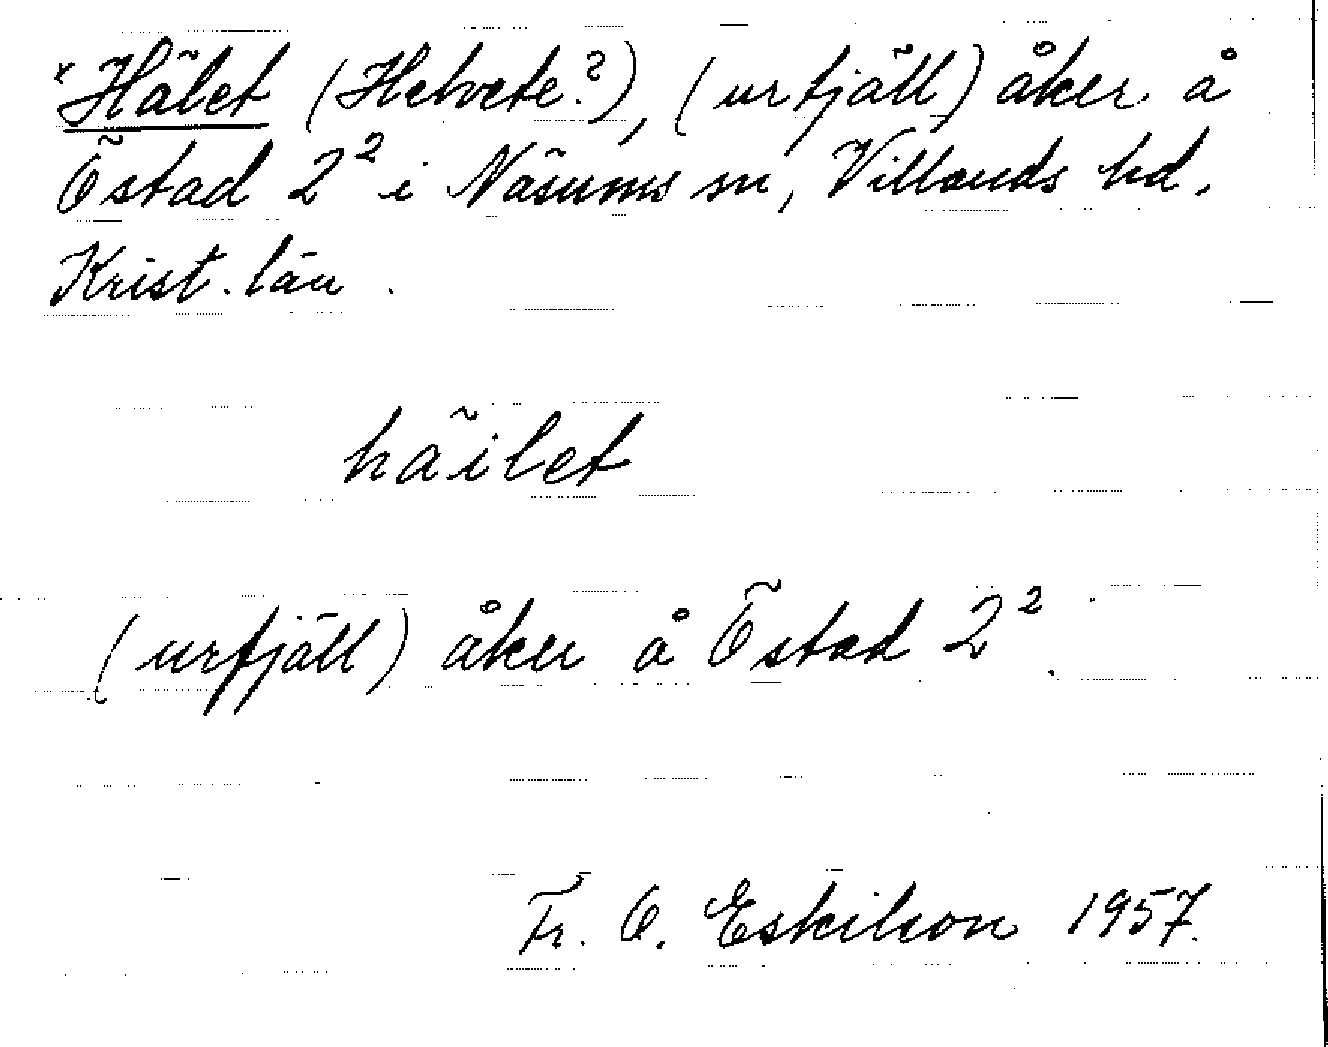 × Hälet (Helvete?), (urfjäll) åker å
Östad 2² i Näsums sn, Villands hd,
Krist. län.
häilet
(urfjäll) åker å Östad 2².
Fr. O. Eskilson 1957.